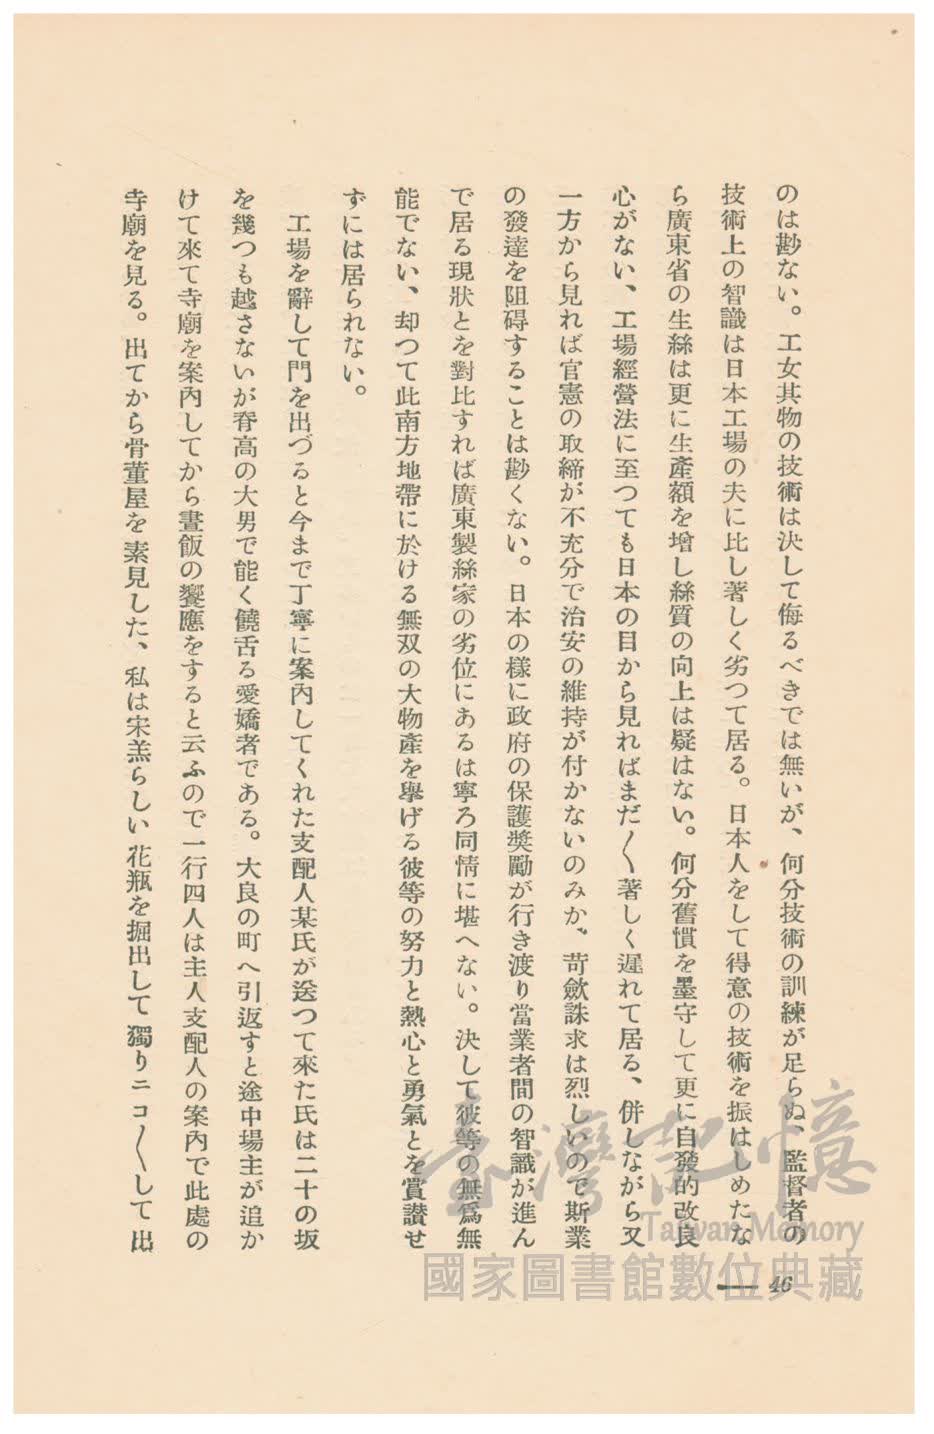 のは尠ない。工女其物の技術は決して侮るべきでは無いが、何分技術の訓練が足らぬ、監督者の
技術上の智識は日本工場の夫に比し著しく劣つて居る。日本人をして得意の技術を振はしめたな
ら廣東省の生絲は更に生產額を增し絲質の向上は疑はない。何分舊慣を墨守して更に自發的改良
心がない、工場經營法に至つても日本の目から見ればまだ〱著しく遲れて居る、併しながら又
一方から見れば官憲の取締が不充分で治安の維持が付かないのみか、苛歛誅求は烈しいので斯業
の發達を阻碍することは尠くない。日本の樣に政府の保護奬勵が行き渡り當業者間の智識が進ん
で居る現狀とを對比すれば廣東製絲家の劣位にあるは寧ろ同情に堪へない。決して彼等の無爲無
能でない、却つて此南方地帶に於ける無双の大物產を擧げる彼等の努力と熱心と勇氣とを賞讃せ
ずには居られない。
工場を辭して門を出づると今まで丁寧に案內してくれた支配人某氏が送つて來た氏は二十の坂
を幾つも越さないが脊高の大男で能く饒舌る愛嬌者である。大良の町へ引返すと途中場主が追か
けて來て寺廟を案內してから晝飯の饗應をすると云ふので一行四人は主人支配人の案內で此處の
寺廟を見る。出てから骨董屋を素見した、私は宋窯らしい花瓶を掘出して獨りニコ〱して出
46
臺灣記憶
Taiwan Memory
國家圖書館數位典藏